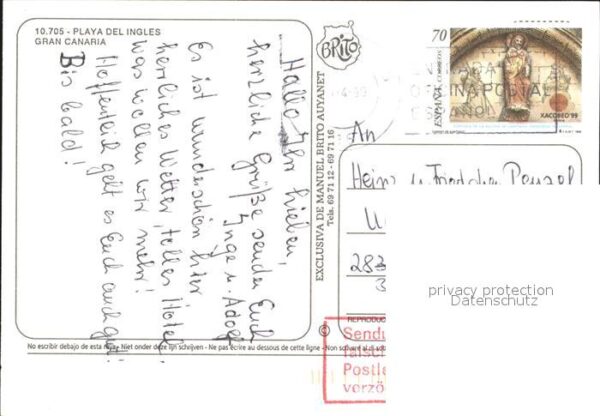 10.705 - PLAYA DEL INGLES
GRAN CANARIA
Hallo Ihr Lieben,
herzliche Grüße senden Euch
Inge u. Adolf
Es ist wunderschön hier
herrliches Wetter, tolles Hotel
was wollen wir mehr!
Hoffentlich geht es Euch auch gut!
Bis bald!
BRITO
EXCLUSIVA DE MANUEL BRITO AUYANET
Tels. 69 71 12 - 69 71 16
70
ESPAÑA CORREOS
XACOBEO'99
OFICINA POSTAL
An
Heinz u. Friedchen
283
privacy protection
Datenschutz
REPRODUC
©
No escribir debajo de esta raya - Niet onder deze lijn schrijven - Ne pas écrire au dessous de cette ligne - Non scrivere al di sotto
Sendu
falsch
Postle
verzö